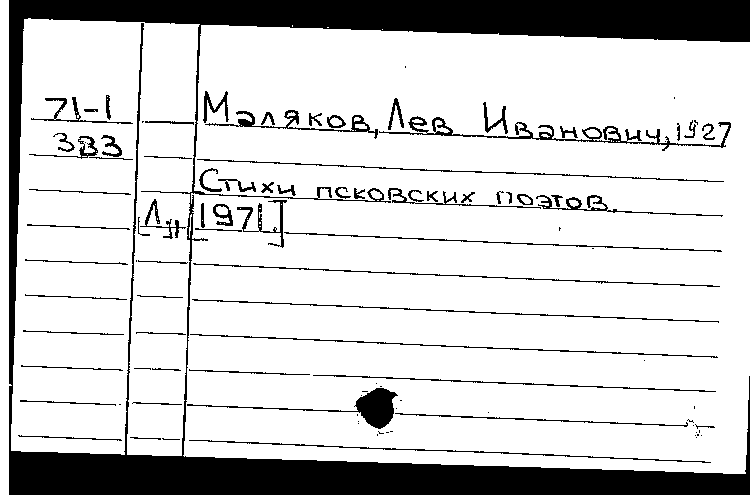 71-1 Маляков, Лев Иванович, 1927
383
Стихи псковских поэтов.
[Л.], [1971.]